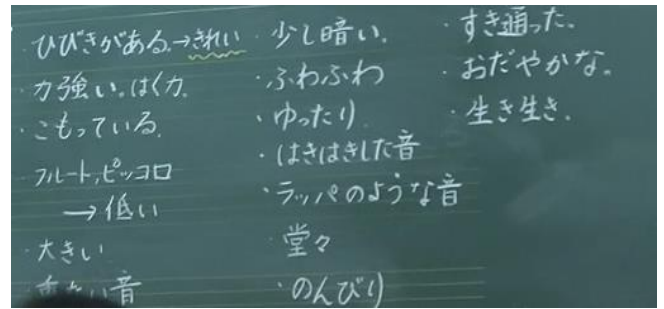 ・ひびきがある。→きれい
・力強い。はく力。
・こもっている。
フルート,ピッコロ
→低い
・大きい
い音
・少し暗い。
・ふわふわ
・ゆったり
・はきはきした音
・ラッパのような音
・堂々
・のんびり
・すき通った。
・おだやかな。
・生き生き。